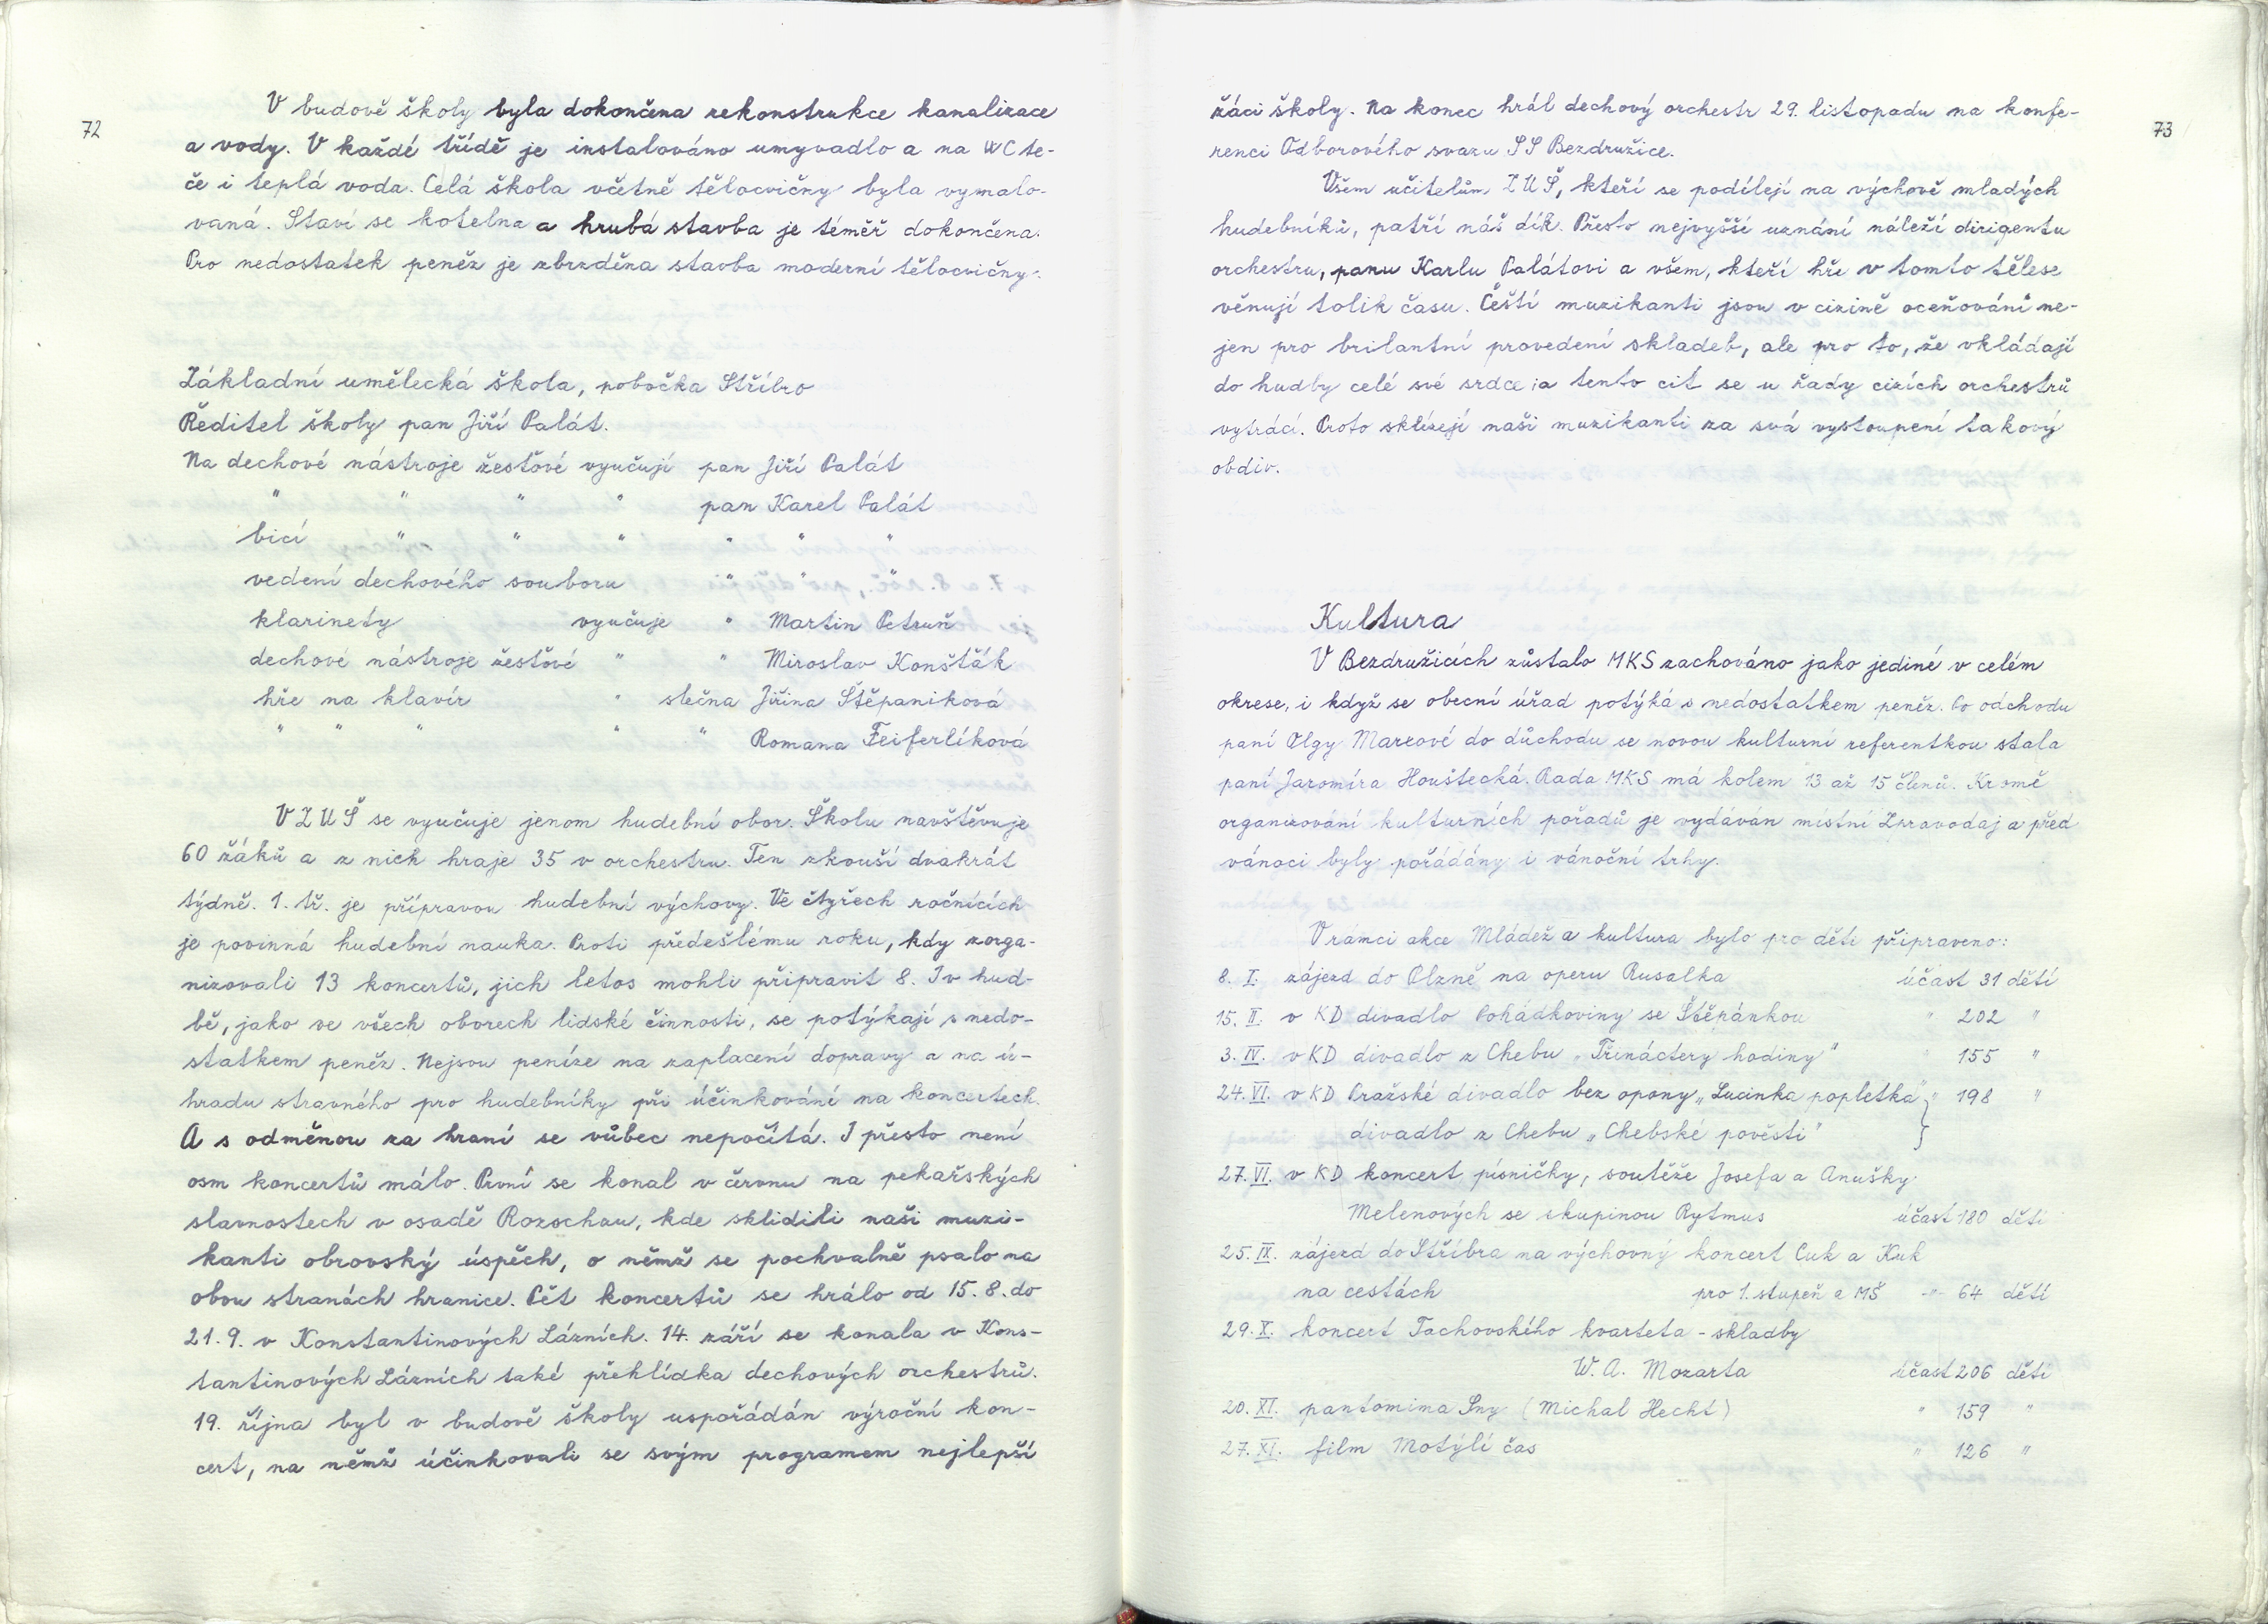 72
V budově školy byla dokončena rekonstrukce kanalizace
a vody. V každé třídě je instalováno umyvadlo a na WC te-
če i teplá voda. Celá škola včetně tělocvičny byla vymalo-
vaná. Staví se kotelna a hrubá stavba je téměř dokončena.
Pro nedostatek peněz je zbrzděna stavba moderní tělocvičny.
Základní umělecká škola, pobočka Stříbro
Ředitel školy pan Jiří Palát.
Na dechové nástroje žesťové vyučují pan Jiří Palát
" " " " pan Karel Palát
bicí " " " " " "
vedení dechového souboru " " "
klarinety vyučuje " Martin Petruň
dechové nástroje žesťové " " Miroslav Konšťák
hře na klavír " slečna Jiřina Štěpaniková
" " " " " Romana Feiferlíková
V ZUŠ se vyučuje jenom hudební obor. Školu navštěvuje
60 žáků a z nich hraje 35 v orchestru. Ten zkouší dvakrát
týdně. 1. tř. je přípravou hudební výchovy. Ve čtyřech ročnících
je povinná hudební nauka. Proti předešlému roku, kdy zorga-
nizovali 13 koncertů, jich letos mohli připravit 8. I v hud-
bě, jako ve všech oborech lidské činnosti, se potýkají s nedo-
statkem peněz. Nejsou peníze na zaplacení dopravy a na ú-
hradu stravného pro hudebníky při účinkování na koncertech.
A s odměnou za hraní se vůbec nepočítá. I přesto není
osm koncertů málo. První se konal v červnu na pekařských
slavnostech v osadě Rozschau, kde sklidili naši muzi-
kanti obrovský úspěch, o němž se pochvalně psalo na
obou stranách hranice. Pět koncertů se hrálo od 15. 8. do
21. 9. v Konstantinových Lázních. 14. září se konala v Kons-
tantinových Lázních také přehlídka dechových orchestrů.
19. října byl v budově školy uspořádán výroční kon-
cert, na němž účinkovali se svým programem nejlepší
73
žáci školy. Na konec hrál dechový orchestr 29. listopadu na konfe-
renci Odborového svazu SS Bezdružice.
Všem učitelům ZUŠ, kteří se podílejí na výchově mladých
hudebníků, patří náš dík. Přesto nejvyšší uznání náleží dirigentu
orchestru, panu Karlu Palátovi a všem, kteří hře v tomto tělese
věnují tolik času. Čeští muzikanti jsou v cizině oceňováni ne-
jen pro brilantní provedení skladeb, ale pro to, že vkládají
do hudby celé své srdce a tento cit se u řady cizích orchestrů
vytrácí. Proto sklízejí naši muzikanti za svá vystoupení takový
obdiv.
Kultura
V Bezdružicích zůstalo MKS zachováno jako jediné v celém
okrese, i když se obecní úřad potýká s nedostatkem peněz. Po odchodu
paní Olgy Marxové do důchodu se novou kulturní referentkou stala
paní Jaromíra Houštecká. Rada MKS má kolem 13 až 15 členů. Kromě
organizování kulturních pořadů je vydáván místní Zpravodaj a před
vánoci byly pořádány i vánoční trhy.
V rámci akce Mládež a kultura bylo pro děti připraveno:
8. I. zájezd do Plzně na operu Rusalka účast 31 dětí
15. II. v KD divadlo Pohádkoviny se Štěpánkou " 202 "
3. IV. v KD divadlo z Chebu „Třináctery hodiny" " 155 "
24. VI. v KD Pražské divadlo bez opony „Lucinka popletka" } " 198 "
divadlo z Chebu „Chebské pověsti"
27. VI. v KD koncert písničky, soutěže Josefa a Anušky
Melenových se skupinou Rytmus účast 180 dětí
25. IX. zájezd do Stříbra na výchovný koncert Cuk a Kuk
na cestách pro 1. stupeň a MŠ -"- 64 dětí
29. X. koncert Tachovského kvarteta - skladby
W. A. Mozarta účast 206 dětí
20. XI. pantomima Sny (Michal Hecht) " 159 "
27. XI. film Motýlí čas " 126 "